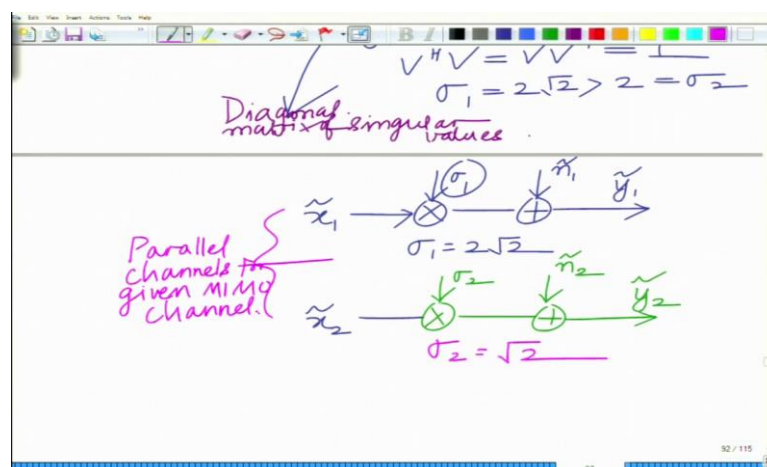 File Edit View Insert Actions Tools Help
B I
V^H V = V V^H = I
σ₁ = 2√2 > 2 = σ₂
Diagonal
matrix of singular
values.
x̃₁ σ₁ × ñ₁ + ỹ₁
σ₁ = 2√2
Parallel
channels for
given MIMO
channel.
x̃₂ σ₂ × ñ₂ + ỹ₂
σ₂ = √2
92 / 115